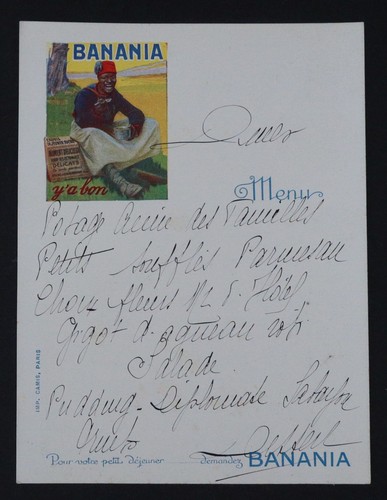 BANANIA
y'a bon
Diner
Menu
Potage Reine des Familles
Petits soufflés Parmesan
Choux fleurs M d'Hôtel
Gigot d'agneau rôti
Salade
Pudding Diplomate Sabayon
Fruits Dessert
IMP. CAMIS, PARIS
Pour votre petit déjeuner demandez BANANIA